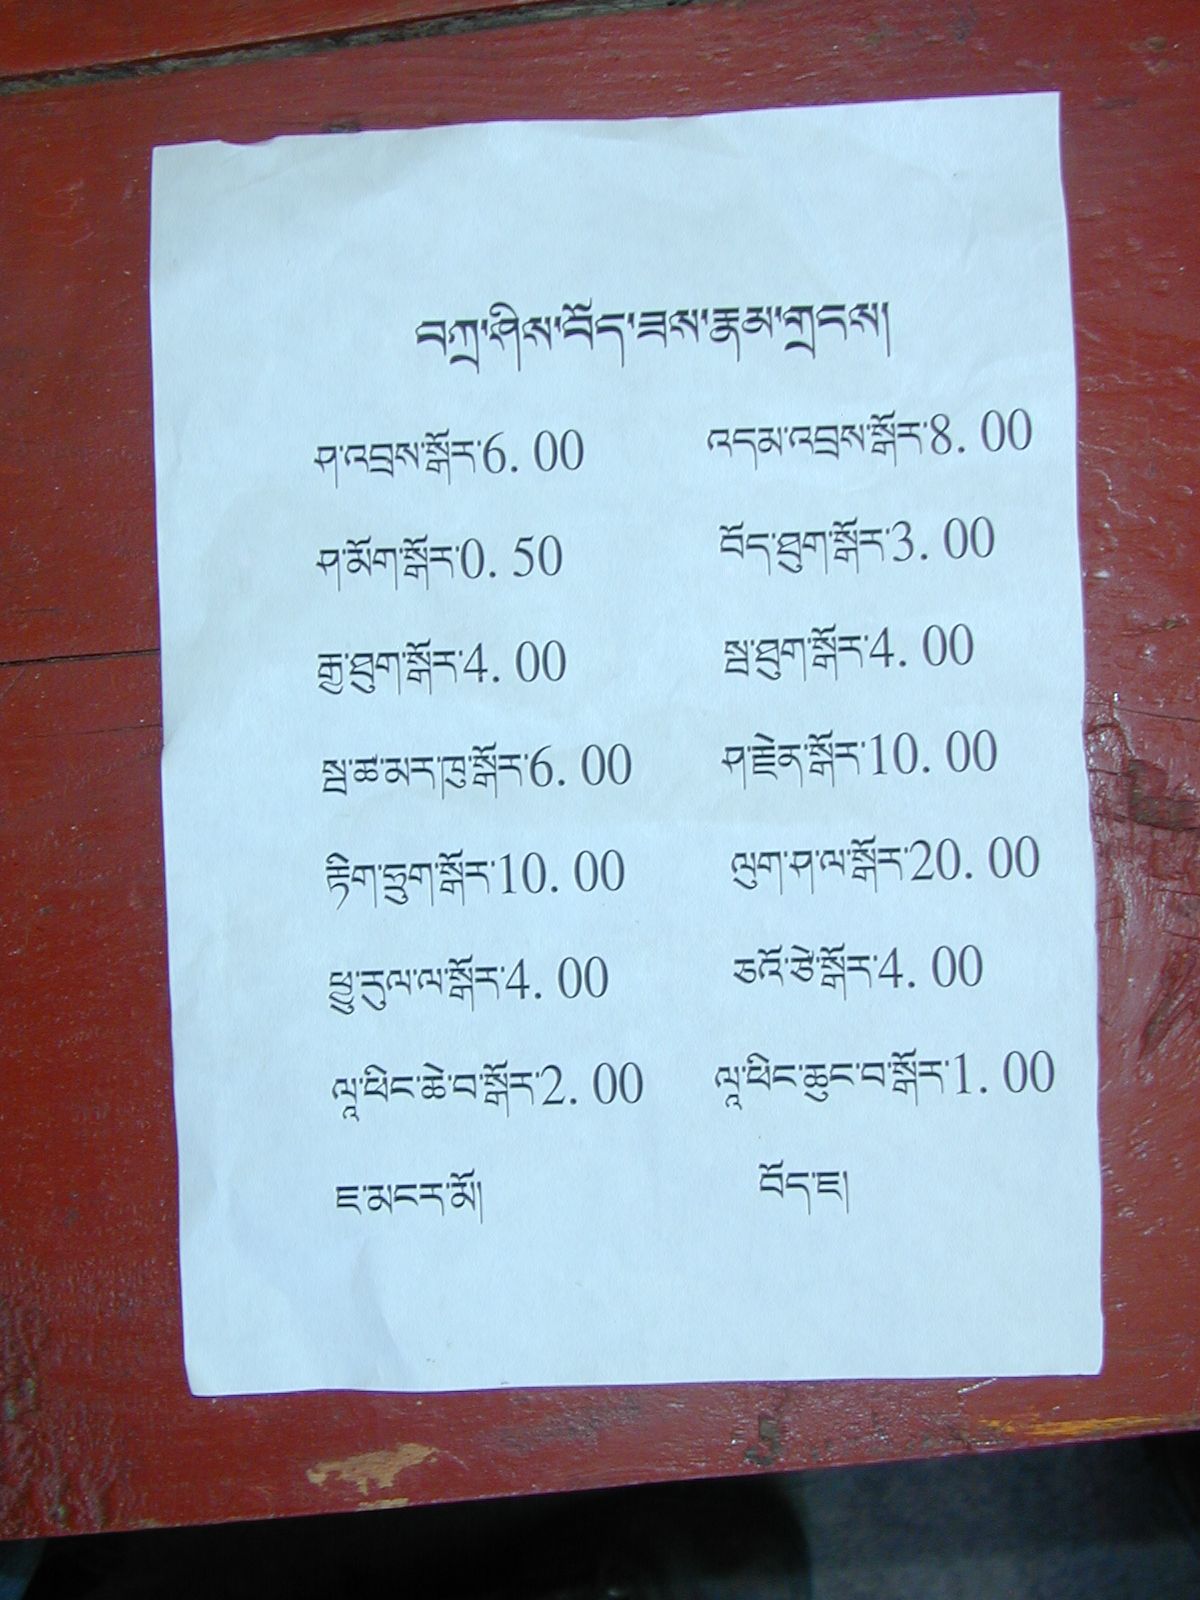 བཀྲ་ཤིས་བོད་ཟས་རྣམ་གྲངས།
ཤ་འབྲས་སྒོར་6. 00 འདམ་འབྲས་སྒོར་8. 00
ཤ་མོག་སྒོར་0. 50 བོད་ཐུག་སྒོར་3. 00
རྒྱ་ཐུག་སྒོར་4. 00 སྦ་ཐུག་སྒོར་4. 00
སྦ་ཚ་མར་ཁུ་སྒོར་6. 00 ཤ་རྗེན་སྒོར་10. 00
རྟིག་ཏྲུག་སྒོར་10. 00 ལུག་ཤ་ལ་སྒོར་20. 00
ཕྱུ་རུལ་ལ་སྒོར་4. 00 ཅའོ་ཙེ་སྒོར་4. 00
ལཱ་ཕིང་ཆེ་བ་སྒོར་2. 00 ལཱ་ཕིང་ཆུང་བ་སྒོར་1. 00
ཇ་མངར་མོ། བོད་ཇ།